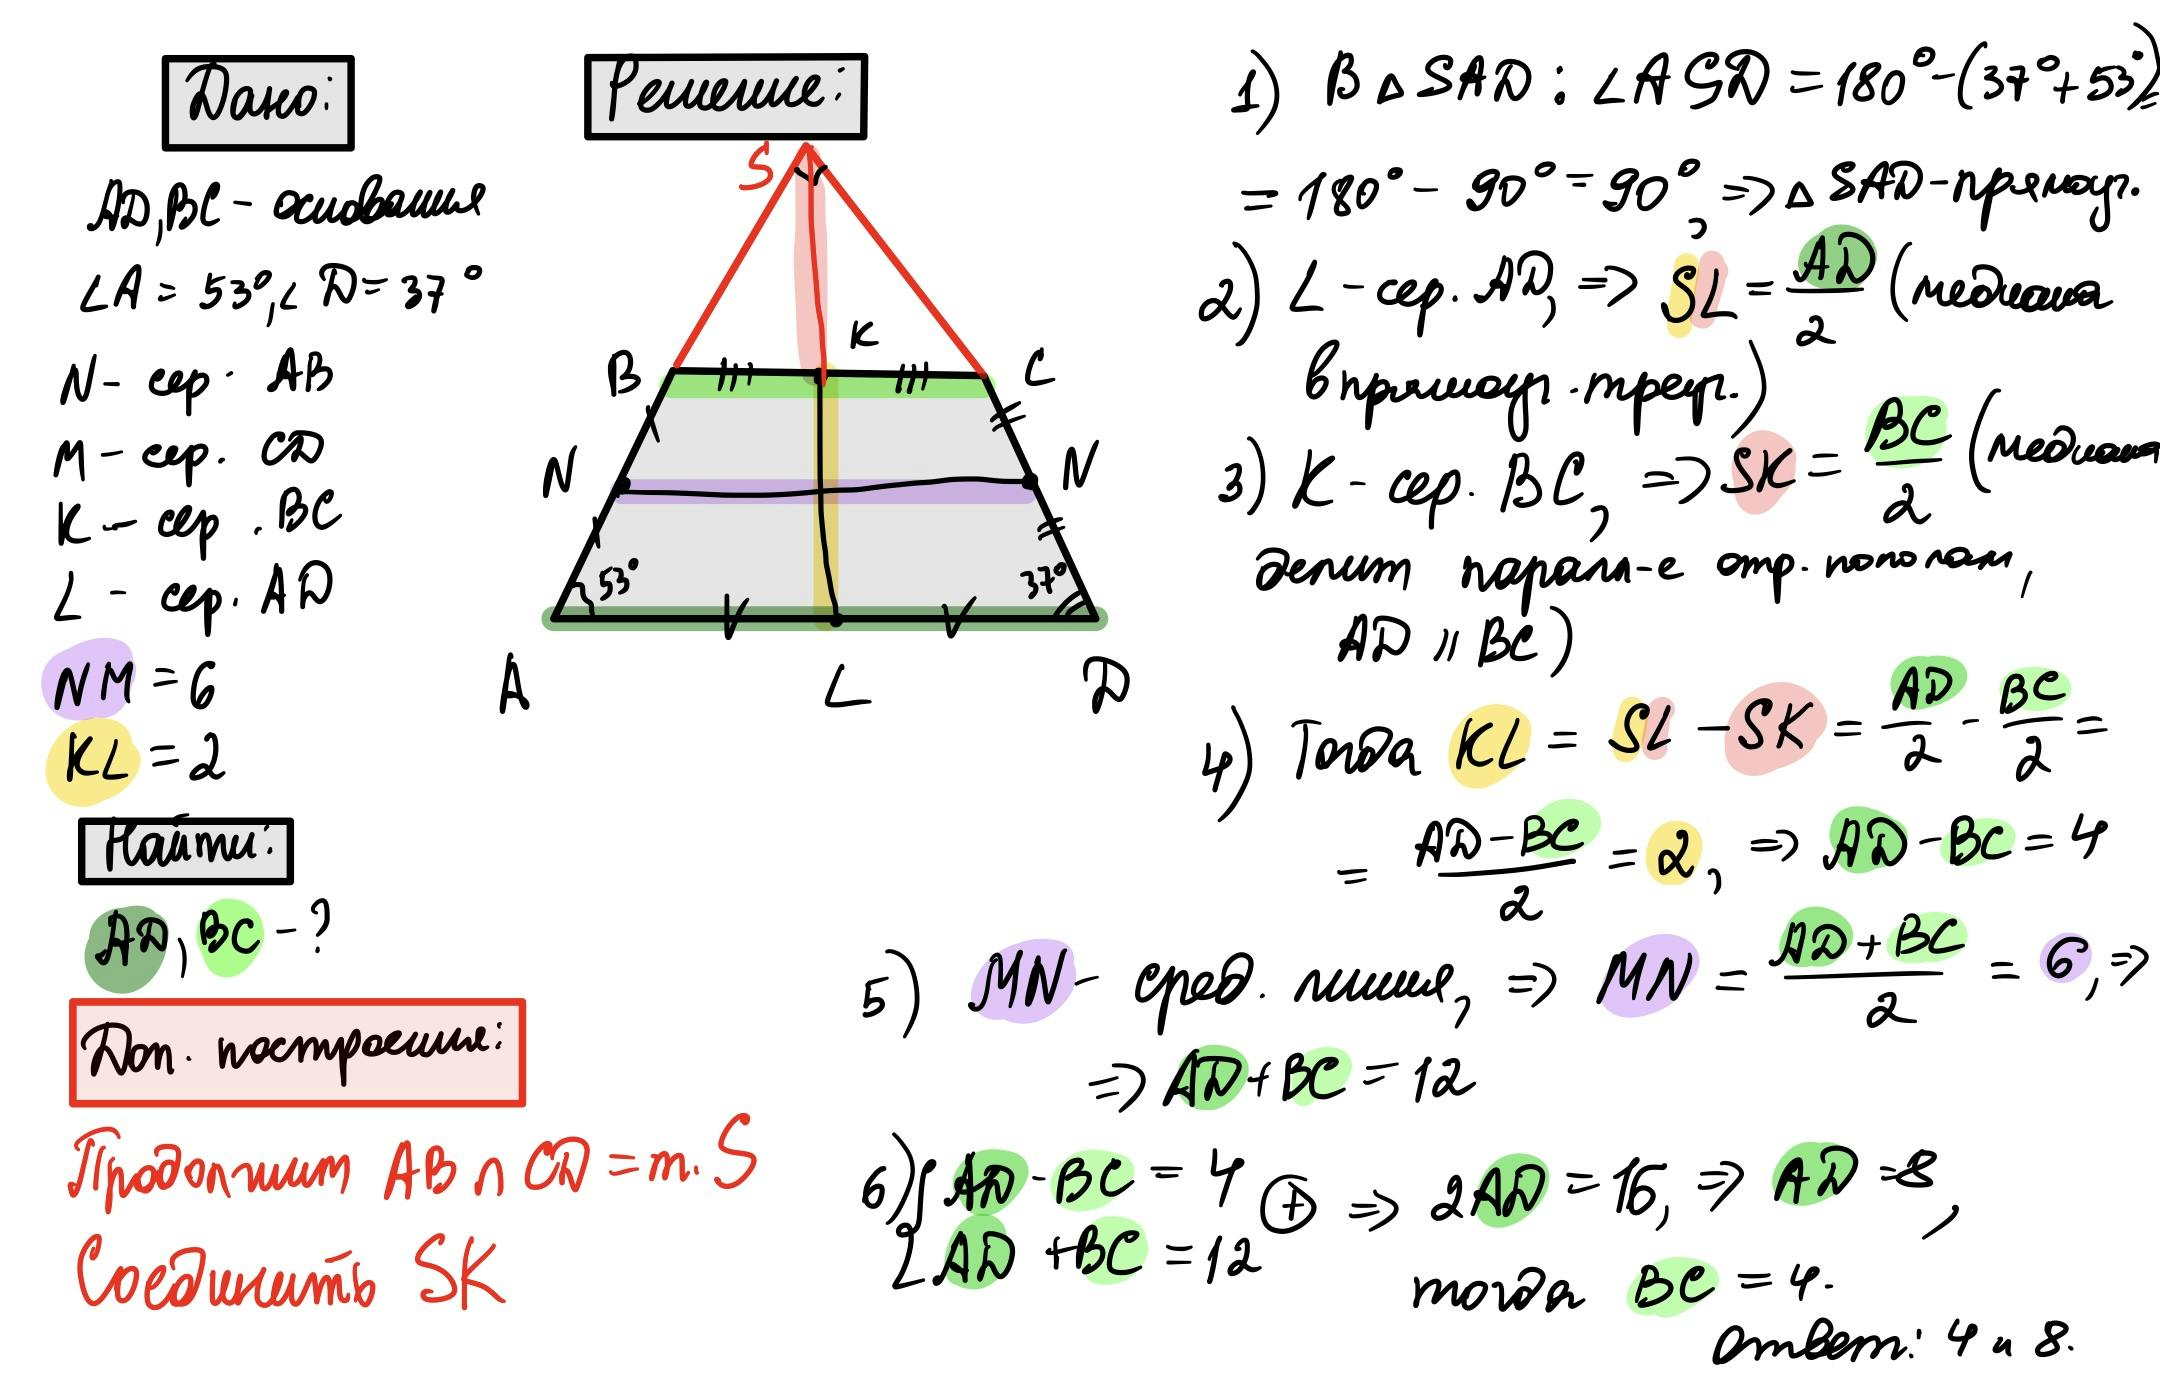 Дано:
AD, BC - основания
∠A = 53°, ∠D = 37°
N - сер. AB
M - сер. CD
K - сер. BC
L - сер. AD
NM = 6
KL = 2
Найти:
AD, BC - ?
Доп. построения:
Продолжим AB ∩ CD = т. S
Соединить SK
Решение:
S
K
B
C
N
N
53°
37°
A
L
D
1) В △ SAD : ∠ASD = 180° - (37° + 53°)=
= 180° - 90° = 90°, => △ SAD - прямоуг.
2) L - сер. AD, => SL = AD/2 (медиана
в прямоуг. треуг.)
3) K - сер. BC, => SK = BC/2 (медиана
делит паралл-е отр. пополам,
AD || BC)
4) Тогда KL = SL - SK = AD/2 - BC/2 =
= (AD - BC)/2 = 2, => AD - BC = 4
5) MN - сред. линия, => MN = (AD + BC)/2 = 6, =>
=> AD + BC = 12
6) { AD - BC = 4 ⊕ => 2AD = 16, => AD = 8,
AD + BC = 12
тогда BC = 4.
ответ: 4 и 8.